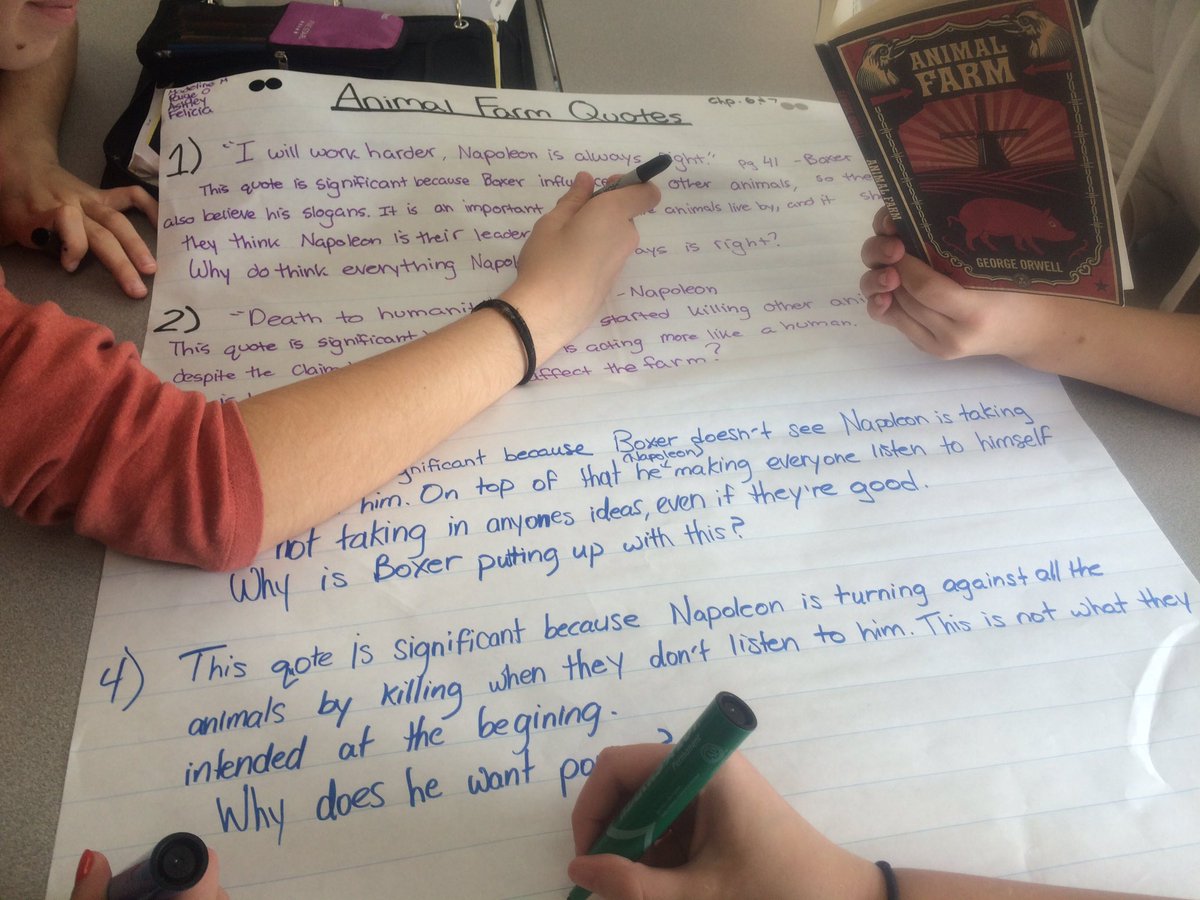 Madeline M
Paige O
Ashley
Felicia
Animal Farm Quotes
Chp. 6 & 7
1) "I will work harder, Napoleon is always right." pg 41 - Boxer
This quote is significant because Boxer other animals, so
also believe his slogans. It is an important animals live by, and it
they think Napoleon is their leader
Why do think everything is right?
2) "Death to - Napoleon
This quote is significant started killing other
despite the is acting more like a human.
affect the farm?
because Boxer doesn't see Napoleon is taking
him. On top of that he (Napoleon) making everyone listen to himself
not taking in anyones ideas, even if they're good.
Why is Boxer putting up with this?
4) This qote is significant because Napoleon is turning against all the
animals by killing when they don't listen to him. This is not what they
intended at the begining.
Why does he want
ANIMAL
FARM
GEORGE ORWELL
ANIMAL FARM